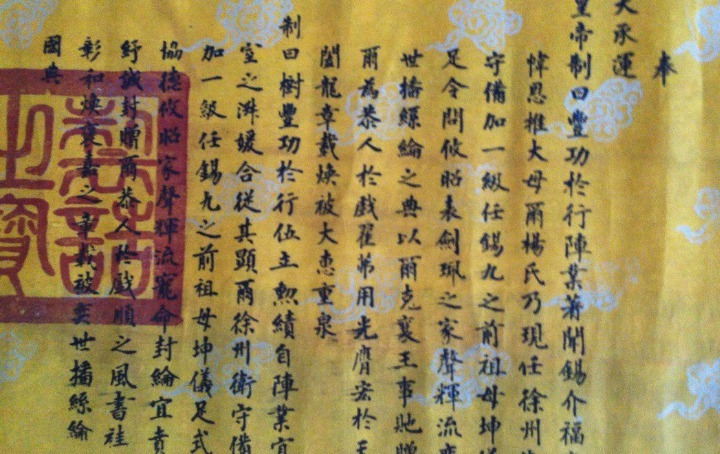 奉
天承運
皇帝制曰豐功於行陣業著聞錫介福
惇恩推大母爾楊氏乃現任徐州
守備加一級任錫九之前祖母坤
足令問攸昭表劍珮之家聲輝流
世播絲綸之典以爾克襄王事貤贈
爾為恭人於戲翟茀用光膺宏於王
閫龍章載煥被大惠重泉
制曰樹豐功於行伍立勲績自陣業宜
室之淋媛合從其顯爾徐州衛守備
加一級任錫九之前祖母坤儀足式
協德攸昭家聲輝流寵命封綸宜賁
紓誠封贈爾恭人於戲順之風書袿
彰和煥襃嘉之章載被奕世播絲綸
國典
制誥之寶